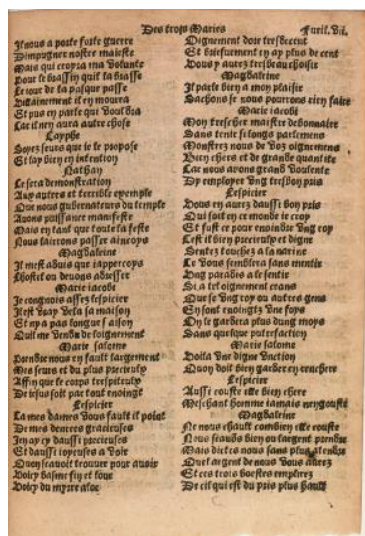 Des trois Maries
Fueil.vii.
Il nous a porte forte guerre
Dimpugner nostre maieste
Mais qui croyra ma volunte
Pour le brassin quil la brasse
Le iour de la pasque passe
Villainement il en mourra
Et puis en parle qui vouldra
Car il nen aura autre chose
Cayphe
Soyez seurs que ie le propose
Et lay bien en intention
Nathan
Ce sera demonstration
Aux autres et terrible exemple
Qui nous gubernateurs du temple
Avons puissance manifeste
Mais en tant que toute la feste
Nous lairrons passer aincoys
Magdaleine
Il mest aduis que iappercoys
Lhostel ou deuons adresser
Marie iacobi
Je congnois assez lespicier
Il est vray vela sa maison
Et ny a pas longue saison
Quil me vendit de loignement
Marie salome
Prendre nous en fault largement
Mes seurs et du plus precieulx
Affin que le corps
De iesus soit par tout enoingt
Lespicier
La mes dames vous fault il point
De mes denrees gracieuses
Jen ay cy daussi precieuses
Et daussi ioyeuses a voir
Quon scauroit trouuer pour auoir
Voicy basme fin et
Voicy du myrre aloe
Oignement doit tresdecent
Et briefuement en ay plus de cent
Vous y aurez tresbeau choisir
Magdaleine
Il parle bien a mon plaisir
Sachons se nous pourrons rien faire
Marie iacobi
Mon trescher maistre debonnaire
Sans tenir si longs parlemens
Monstrez nous de voz oignemens
Bien chers et de grande quantite
Car nous avons grand voulente
Dy employer vng tresbon pris
Lespicier
Vous en aurez daussi bon pris
Qui soit en ce monde ie croy
Et fust ce pour enoindre vng roy
Cest il bien precieulx et digne
Sentez touchez a la narine
Ce vous semblera sans mentir
Vng paradis a le sentir
Si a tel oignement
Que se vng roy ou autres gens
En sont enoingtz vne foys
On le gardera plus dung moys
Sans quelque putrefaction
Marie salome
Voila vne digne vnction
Quon doit bien garder
Lespicier
Aussi couste elle bien chere
Meschant homme iamais nen gouste
Magdaleine
Ne nous chault combien elle couste
Nous scauons bien ou largent prendre
Mais dictes nous sans plus attendre
Quel argent de nous vous aurez
Et ces trois boestes emplirez
De cil qui est du pris plus hault